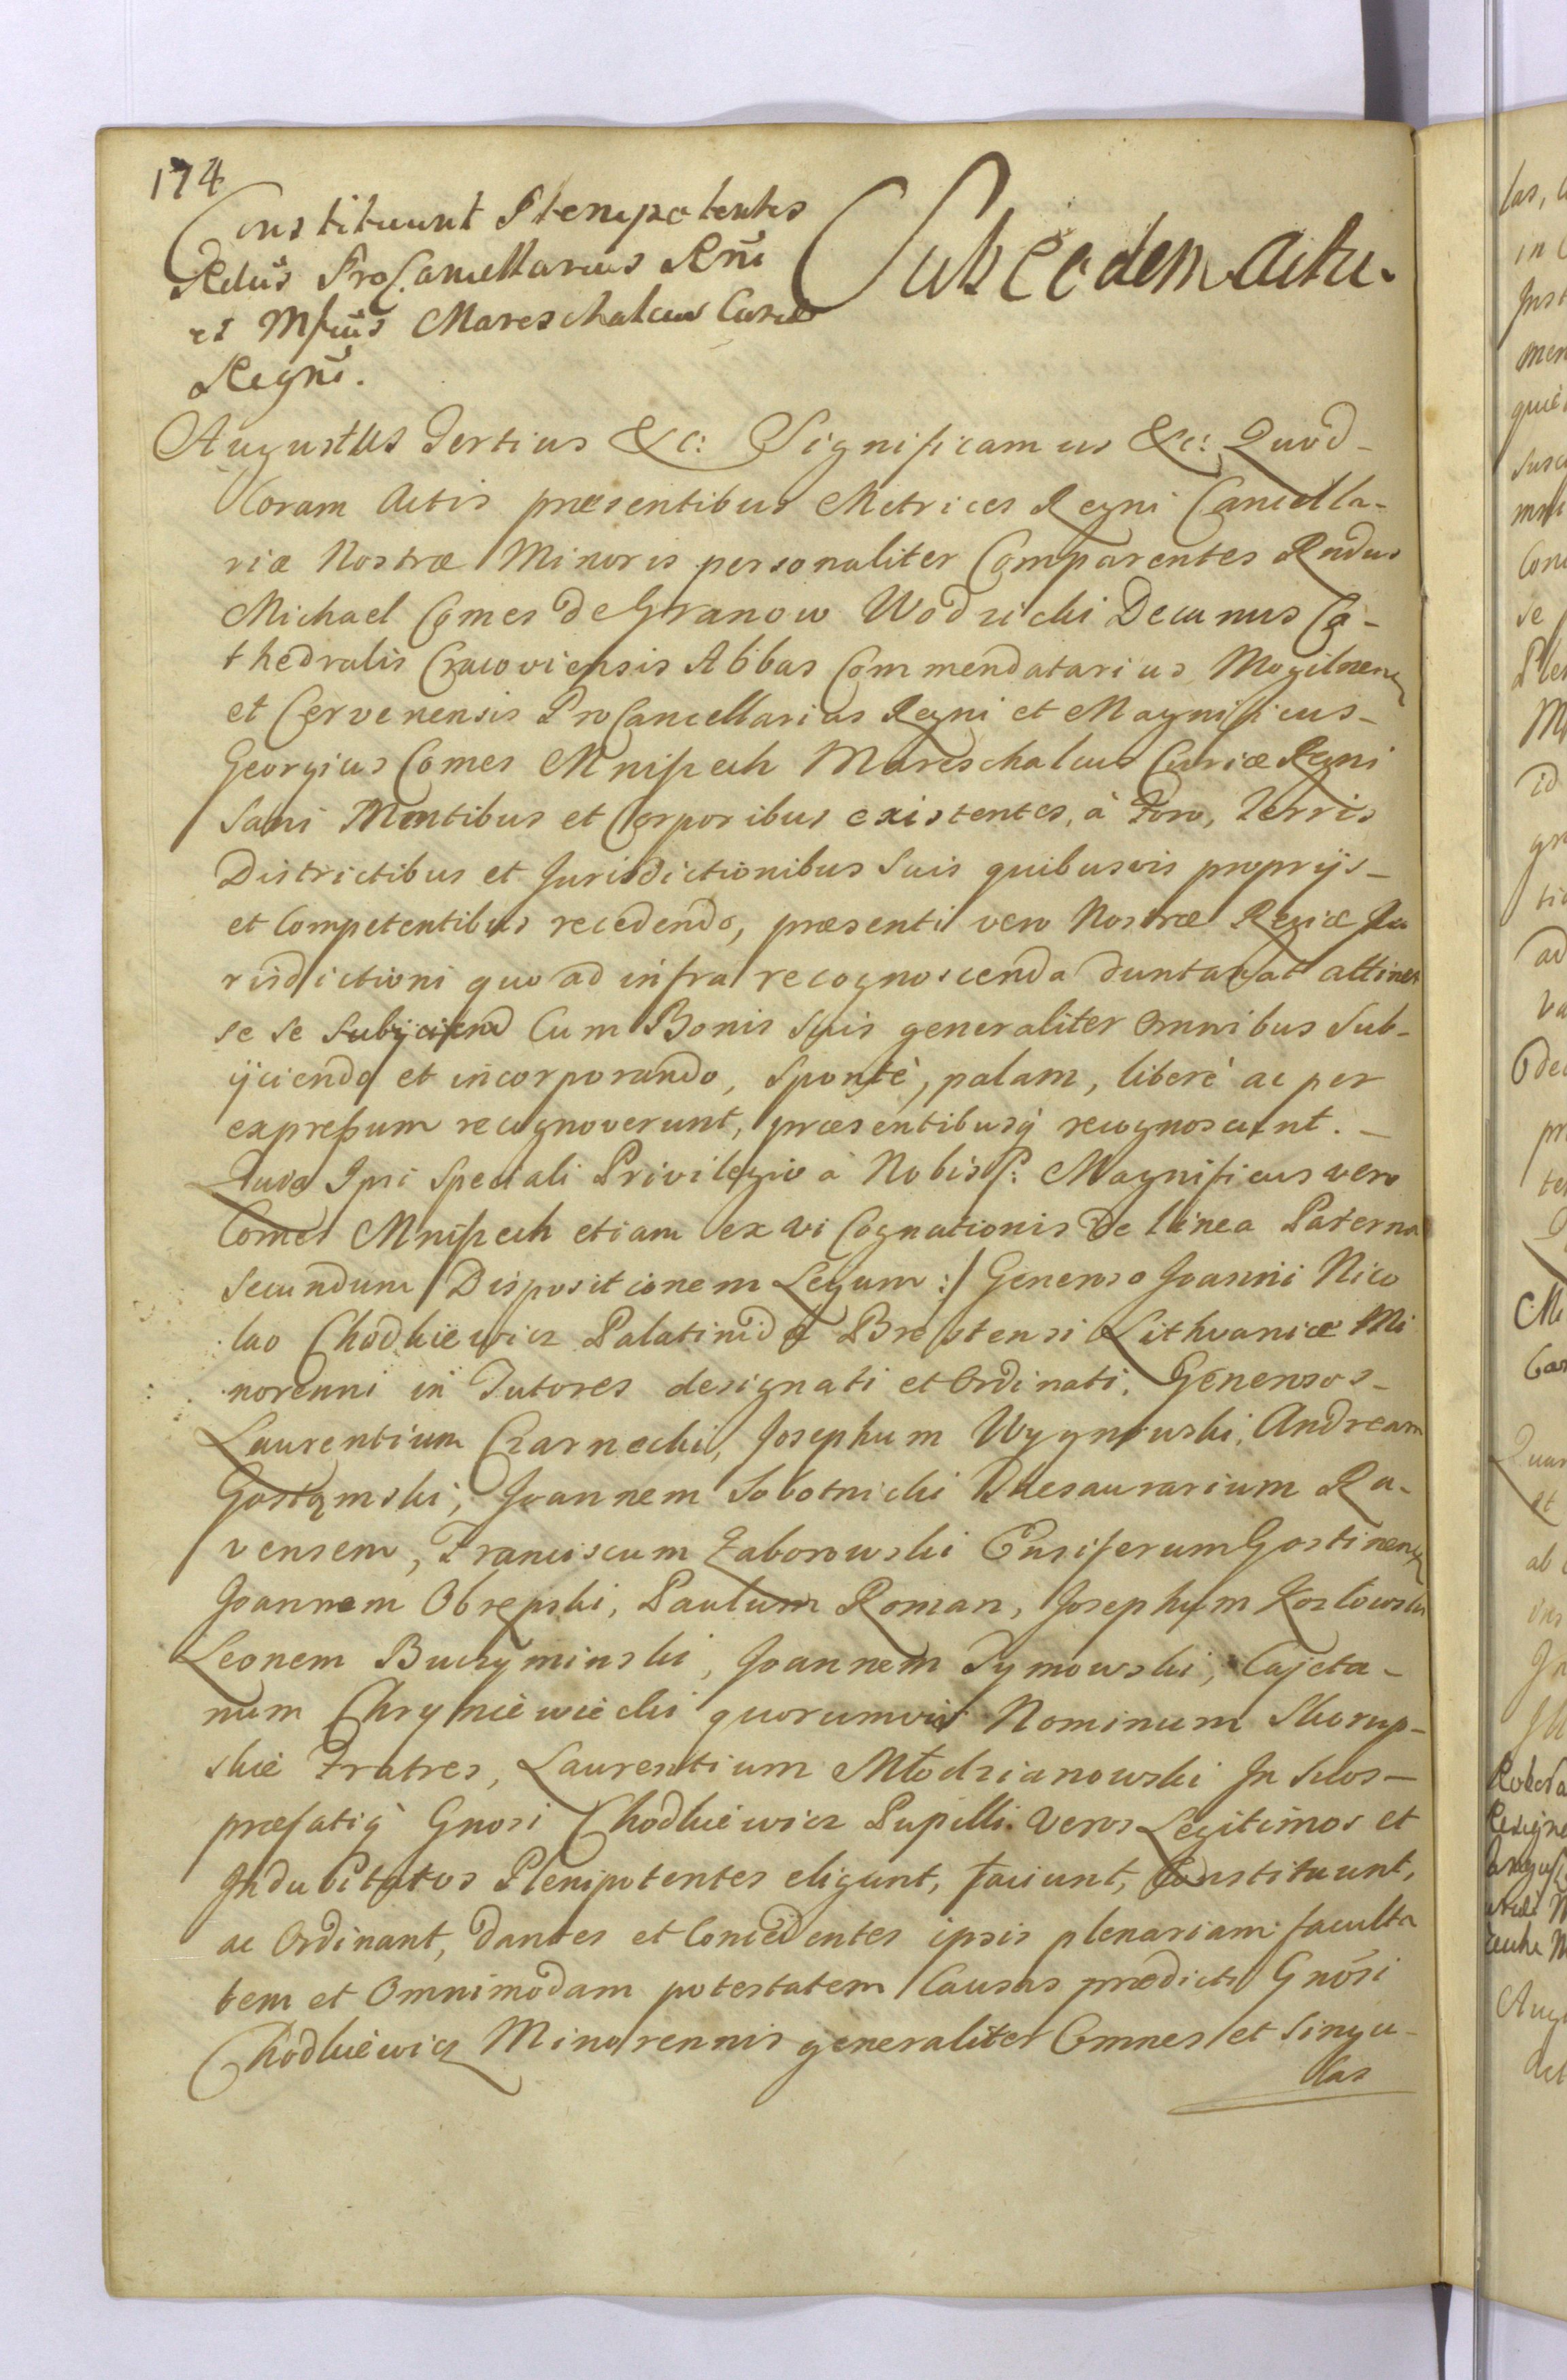 174
Constituunt Plenipotentes
Rdūs ProCancellarius Rni
et Mfcūs Mareschalcus Curiæ
Regni.
Sub eodem actu.
Augustus Tertius &c: Significamus &c: Quod
Coram Actis præsentibus Metrices Regni Cancella-
riæ Nostræ Minoris personaliter Comparentes Rndus
Michael Comes de Granow Wodzicki Decanus Ca-
thedralis Cracoviensis Abbas Commendatarius Mogilnen
et Cervenensis ProCancellarius Regni et Magnificus
Georgius Comes Mniszech Mareschalcus Curiæ Regni
Sani Mentibus et Corporibus existentes, à Foro, Terris
Districtibus et Jurisdictionibus Suis quibusvis proprijs
et Competentibus recedendo, præsenti vero Nostræ Regiæ Ju
risdictioni quo ad infra recognoscenda duntaxat attinet
se se Cum Bonis Suis generaliter omnibus Sub-
ijciendo et incorporando, Spontè, palam, liberè ac per
expressum recognoverunt, præsentibusq recognoscunt.
Quia Ipsi Speciali Privilegio à Nobis /: Magnificus vero
Comes Mniszech etiam ex vi Cognationis de linea Paterna
Secundum Dispositionem Legum :/ Generoso Joanni Nico
lao Chodkiewicz Palatinidæ Brestensi Lithvaniæ Mi
norenni in Tutores designati et Ordinati, Generosos
Laurentium Czarnecki, Josephum Wygnowski, Andream
Gostąmski, Joannem Sobotnicki Thesaurarium Ra-
vensem, Franciscum Zaborowski Ensiferum Gostinen
Joannem Obrępski, Paulum Roman, Josephum Kozłowski
Leonem Buczyminski, Joannem Dymowski, Cajeta-
num Chryniewiecki quorumvis Nominum Skorup-
skie Fratres, Laurentium Młodzianowski In Suos
præfatiq Gnosi Chodkiewicz Pupilli Veros Legitimos et
Indubitatos Plenipotentes eligunt, faciunt, Constituunt,
ac Ordinant, dantes et Concedentes ipsis plenariam faculta
tem et Omnimodam potestatem Causas prædicti Gnōsi
Chodkiewicz Minorennis generaliter Omnes et Singu-
las